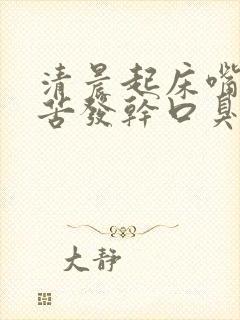 清晨起床嘴
苦發幹口臭
大靜